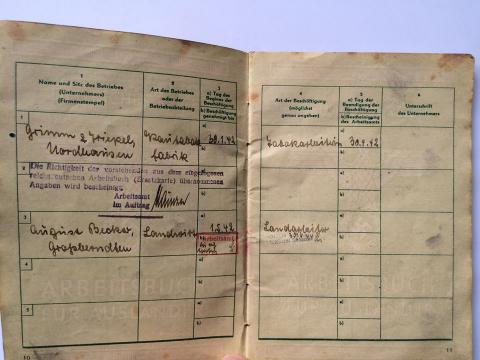 1
Name und Sitz des Betriebes
(Unternehmers)
(Firmenstempel)
2
Art des Betriebes
oder der
Betriebsabteilung
3
a) Tag des
Beginns der
Beschäftigung
b)
4
Art der Beschäftigung
(möglichst
genau angeben)
5
a) Tag der
Beendigung der
Beschäftigung
b) Bescheinigung
des Arbeitsamts
6
Unterschrift
des Unternehmers
1
Grimm & Triepel,
Nordhausen
Kautabak
fabrik
a)
30.1.42
b)
Tabakarbeiterin
a)
30.1.42
b)
2
Die Richtigkeit der vorstehenden aus dem eingezogenen
reichsdeutschen Arbeitsbuch (Ersatzkarte) übernommenen
Angaben wird bescheinigt.
Arbeitsamt
im Auftrag
a)
b)
3
August Becker,
Großberndten
Landwirt
a)
1.5.42
b)
Arbeitsamt
Landarbeiter
a)
b)
4
a)
b)
a)
b)
5
a)
b)
a)
b)
ARBEITSBUCH
FÜR AUSLÄNDER
ARBEITSBUCH
FÜR AUSLÄNDER
10
11